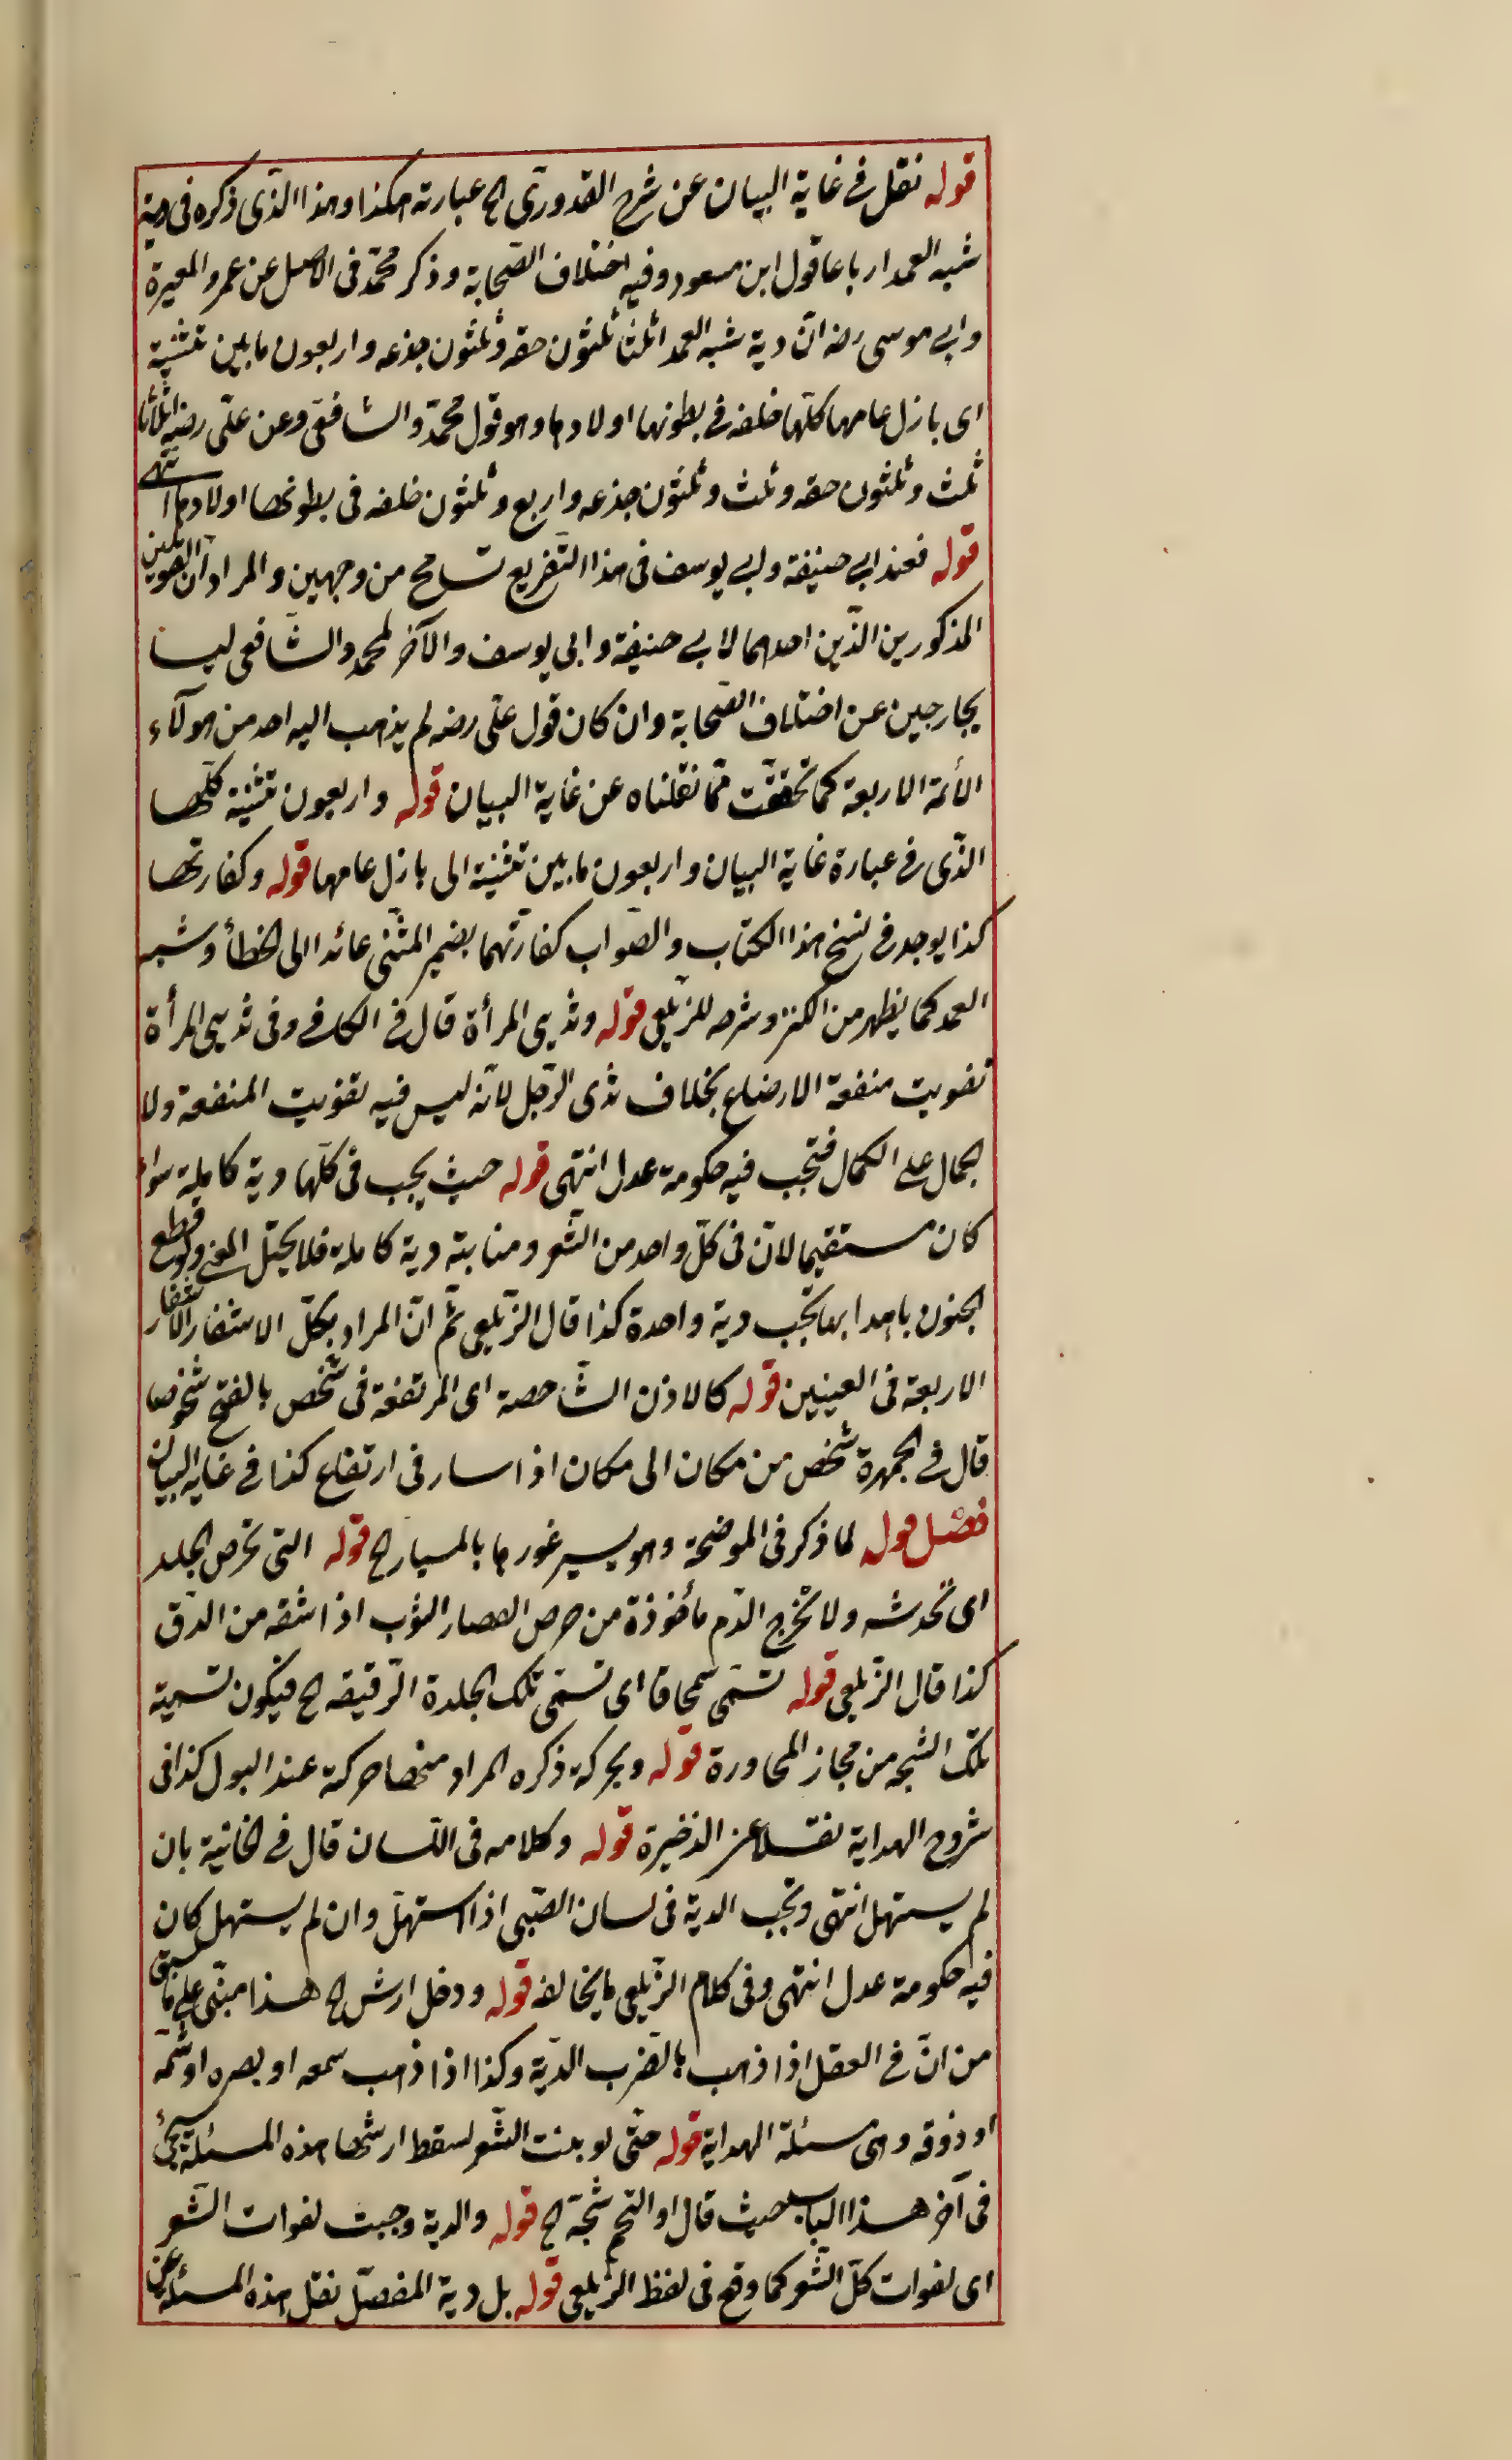 قوله نقل فى غاية البيان عن شرح القدورى الخ عبارته هكذا وهذا الذى ذكره فى دية
شبه العمد ارباعا قول ابن مسعود وفيه اختلاف الصّحابة وذكر محمّد فى الاصل عن عمر والمغيرة
وابى موسى رضه انّ دية شبه العمد اثلثا ثلثون حقه وثلثون جذعه واربعون مابين ثنية
اى بازل عامها كلّها خلفه فى بطونها اولادها وهو قول محمّد والشافعى وعن علّى رضه اثلاثا
ثلث وثلثون حقه وثلث وثلثون جذعه واربع وثلثون خلفه فى بطونها اولادها انتهى
قوله فعند ابى حنيفة وابى يوسف فى هذا التّفريع تسامح من وجهين والمراد انّ القولين
المذكورين الّذين احدهما لابى حنيفة وابى يوسف والآخر لمحمد والشّافعى ليسا
بخارجين عن اختلاف الصّحابة وان كان قول علّى رضه لم يذهب اليه احد من هولآء
الأئمة الاربعة كما تحققت ممّا نقلناه عن غاية البيان قوله واربعون ثنية كلّها
الذّى فى عبارة غاية البيان واربعون مابين ثنية الى بازل عامها قوله وكفارتها
كذا يوجد فى نسخ هذا الكتاب والصّواب كفارتهما بضمير المثنّى عائدا الى الخطأ وشبه
العمد كما يظهر من الكنز وشرحه للزيلعى قوله وثديى المرأة قال فى الكافى وفى ثديى المرأة
تفويت منفعة الارضاع بخلاف ثدى الرّجل لانّه ليس فيه تفويت المنفعة ولا
الجمال على الكمال فتجب فيه حكومة عدل انتهى قوله حيث يجب فى كلّها دية كاملة سواء
كان مستقيما لانّ فى كلّ واحد من الشّعر ومنابته دية كاملة فلا يختل المعنى ولو قطع
الجفون باهدابها تجب دية واحدة كذا قال الزّيلعى ثمّ انّ المراد بكلّ الاشفار الاشفار
الاربعة فى العينين قوله كالاذن الشّاخصة اى المرتفعة فى شخص بالفتح شخوصا
قال فى الجمهرة شخص من مكان الى مكان اذا سار فى ارتفاع كذا فى غاية البيان
فصل قوله لما ذكر فى الموضحة وهو يسبر غورها بالمسبار الخ قوله التى تحرص الجلد
اى تخدشه ولا تخرج الدّم مأخوذة من حرص القصار الثوب اذا شقه من الدّق
كذا قال الزّيلعى قوله تسمّى سمحاقا اى تسمّى تلك الجلدة الرّقيقه الخ فيكون تسمية
تلك الشجه من مجاز المجاورة قوله وبحركة ذكره المراد منها حركة عند البول كذا فى
شروح الهداية نقلا عن الذخيرة قوله وكلامه فى اللسان قال فى الخانية بان
لم يستهل انتهى وتجب الدية فى لسان الصّبى اذا استهلّ وان لم يستهل كان
فيه حكومة عدل انتهى وفى كلام الزّيلعى ما يخالفه قوله ودخل ارش الخ هذا مبنّى على ما سبق
من انّ فى العقل اذا ذهب بالضّرب الدّية وكذا اذا ذهب سمعه او بصره او شمّه
او ذوقه وهى مسئلة الهداية قوله حتّى لو نبت الشّعر لسقط ارشها هذه المسئلة تجئ
فى آخر هذا الباب حيث قال او التحم شجّة الخ قوله والدية وجبت لفوات الشّعر
اى لفوات كلّ الشّعر كما وقع فى لفظ الزّيلعى قوله بل دية المفصّل نقل هذه المسئلة عن